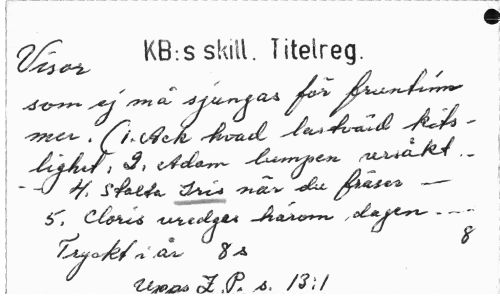 KB:s skill. Titelreg.
Visor
som ej må sjungas för fruntim
mer. (1. Ack hvad lastvärd kits-
lighet, 2. Adam lumpen versåkt..
-- 4. Stolta Iris när du fräser —
5. Cloris vredges härom dagen ---
8
Tryckt i år 8 s
Upps L. P. s. 13:1